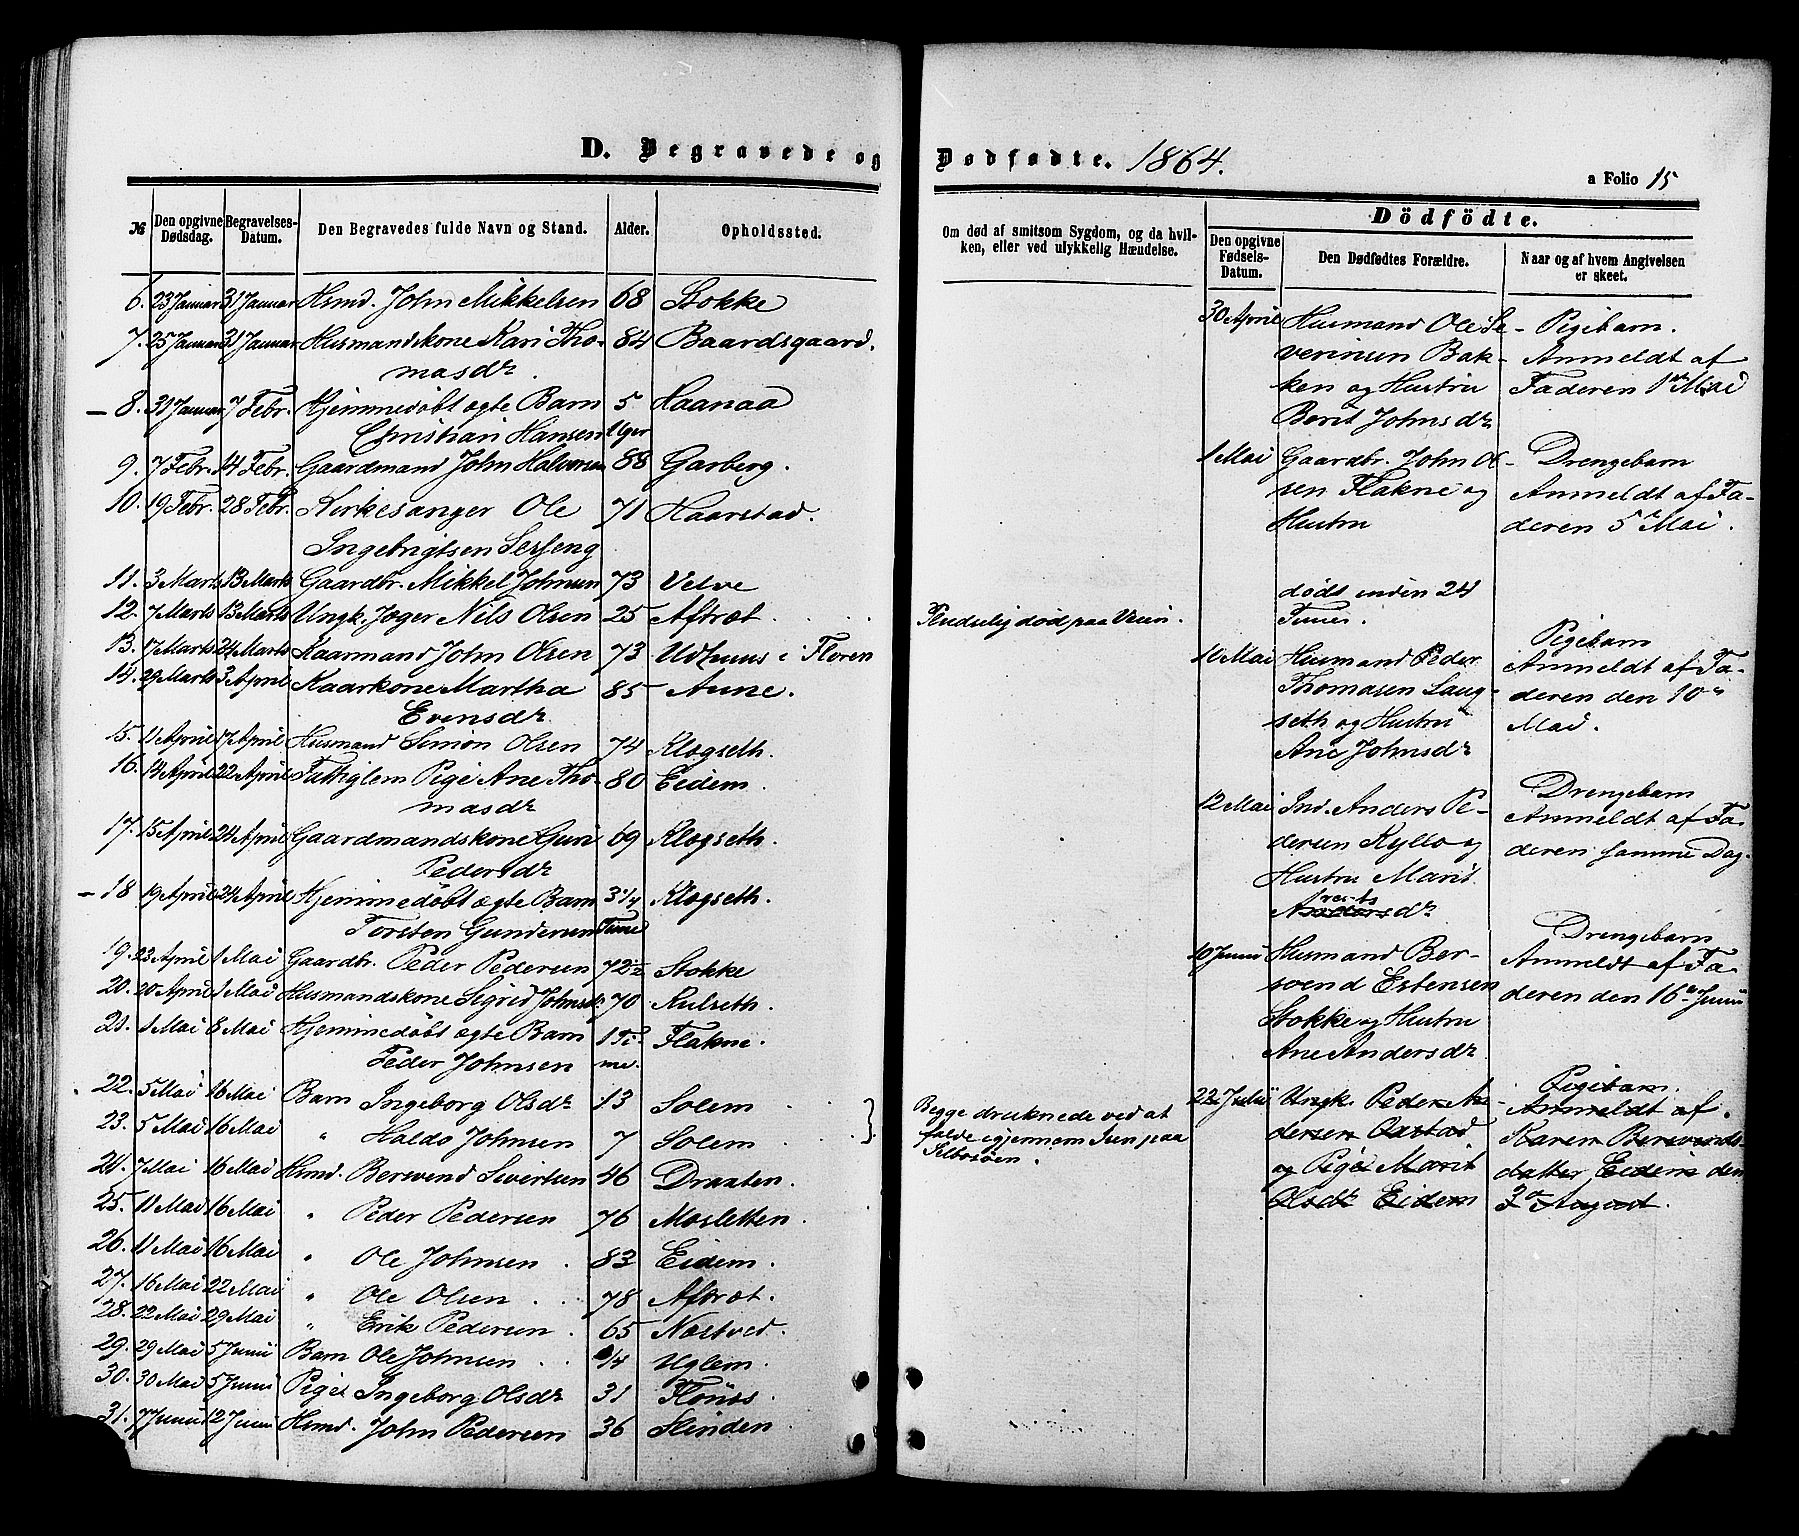 D. Begravede og Dødfødte. 1864.
a Folio 15
№
Den opgivne Dødsdag.
Begravelses-Datum.
Den Begravedes fulde Navn og Stand.
Alder.
Opholdssted.
6. 23 Januar 31 Januar Hsmd. John Mikkelsen 68 Stokke
7. 25 Januar 31 Januar Husmandskone Kari Tho- 84 Baardsgaard.
masdr.
8. 31 Januar 7 Febr. Hjemmedøbt ægte Barn 5 Haanaa
Christian Hansen Uger
9. 7 Febr. 14 Febr. Gaardmand John Halvorsen 88 Garberg.
10. 19 Febr. 28 Febr. Kirkesanger Ole 71 Haarstad.
Ingebrigtsen
11. 3 Marts 13 Marts Gaardbr. Mikkel Johnsen 73 Velve
12. 7 Marts 13 Marts Ungk. Jæger Nils Olsen 25 Aftræt
13. 17 Marts 24 Marts Kaarmand John Olsen 73 Udhuus i Floren
14. 29 Marts 3 April Kaarkone Martha 85 Aune.
Evensdr
15. 11 April 17 April Husmand Simon Olsen 74 Klogseth.
16. 14 April 22 April Fattiglem Pige Ane Tho- 80 Eidem.
masdr
17. 15 April 24 April Gaardmandskone Guri 69 Klogseth.
Pedersdr
18 19 April 24 April Hjemmedøbt ægte Barn 3 1/4 Klogseth.
Torsten Gundersen Time
19. 23 April 1 Mai Gaardbr. Peder Pedersen 72 1/2 Stokke
20. 20 April 1 Mai Husmandskone Sigrid Johnsd. 70 Kulseth.
21. 1 Mai 8 Mai Hjemmedøbt ægte Barn 1 Ti- Flakne.
Peder Johnsen me.
22. 5 Mai 16 Mai Barn Ingeborg Olsdr 13 Solem
23. 5 Mai 16 Mai " Haldo Johnsen 7 Solem
24. 7 Mai 16 Mai Hsmd. Bersvend Sivertsen 46 Draaten.
25. 11 Mai 16 Mai " Peder Pedersen 76 Mosletten.
26. 11 Mai 16 Mai " Ole Johnsen. 83 Eidem.
27. 16 Mai 22 Mai " Ole Olsen 78 Aftræt.
28. 22 Mai 29 Mai " Erik Pedersen. 65 Næstved.
29. 29 Mai 5 Junii Barn Ole Johnsen 1/4 Uglem.
30. 30 Mai 5 Junii Pige Ingeborg Olsdr 31 Flönes.
31. 7 Junii 12 Junii Hsmd. John Pedersen 36 Slinden
Om død af smitsom Sygdom, og da hvil-
ken, eller ved ulykkelig Hændelse.
Pludselig død paa Veien.
Begge druknede ved at
falde igjennem Isen paa
Selbosøen.
Dödfödte.
Den opgivne Fødsels-Datum.
Den Dødfødtes Forældre.
Naar og af hvem Angivelsen er skeet.
30 April Husmand Ole Se- Pigebarn.
verinsen Bak- Anmeldt af
ken og Hustru Faderen 1ste Mai
Berit Johnsdr
1 Mai Gaardbr. John Ol- Drengebarn
sen Flakne og Anmeldt af Fa-
Hustru deren 5 Mai.
døds inden 24
Timer.
10 Mai Husmand Peder Pigebarn
Thomasen Laug- Anmeldt af Fa-
seth og Hustru deren den 10de
Ane Johnsdr Mai.
12 Mai Ind. Anders Pe- Drengebarn
dersen Kyllo og Anmeldt af Fa-
Hustru Marit deren samme Dag.
Andersdr
10 Junii Husmand Ber- Drengebarn
svend Estensen Anmeldt af Fa-
Stokke og Hustru deren den 16de Junii
Ane Andersdr
22 Julii Ungk. Peder An- Pigebarn.
dersen Anmeldt af
og Pige Marit Karen Bersvends-
Olsdr Eidem datter Eidem den
3de August.